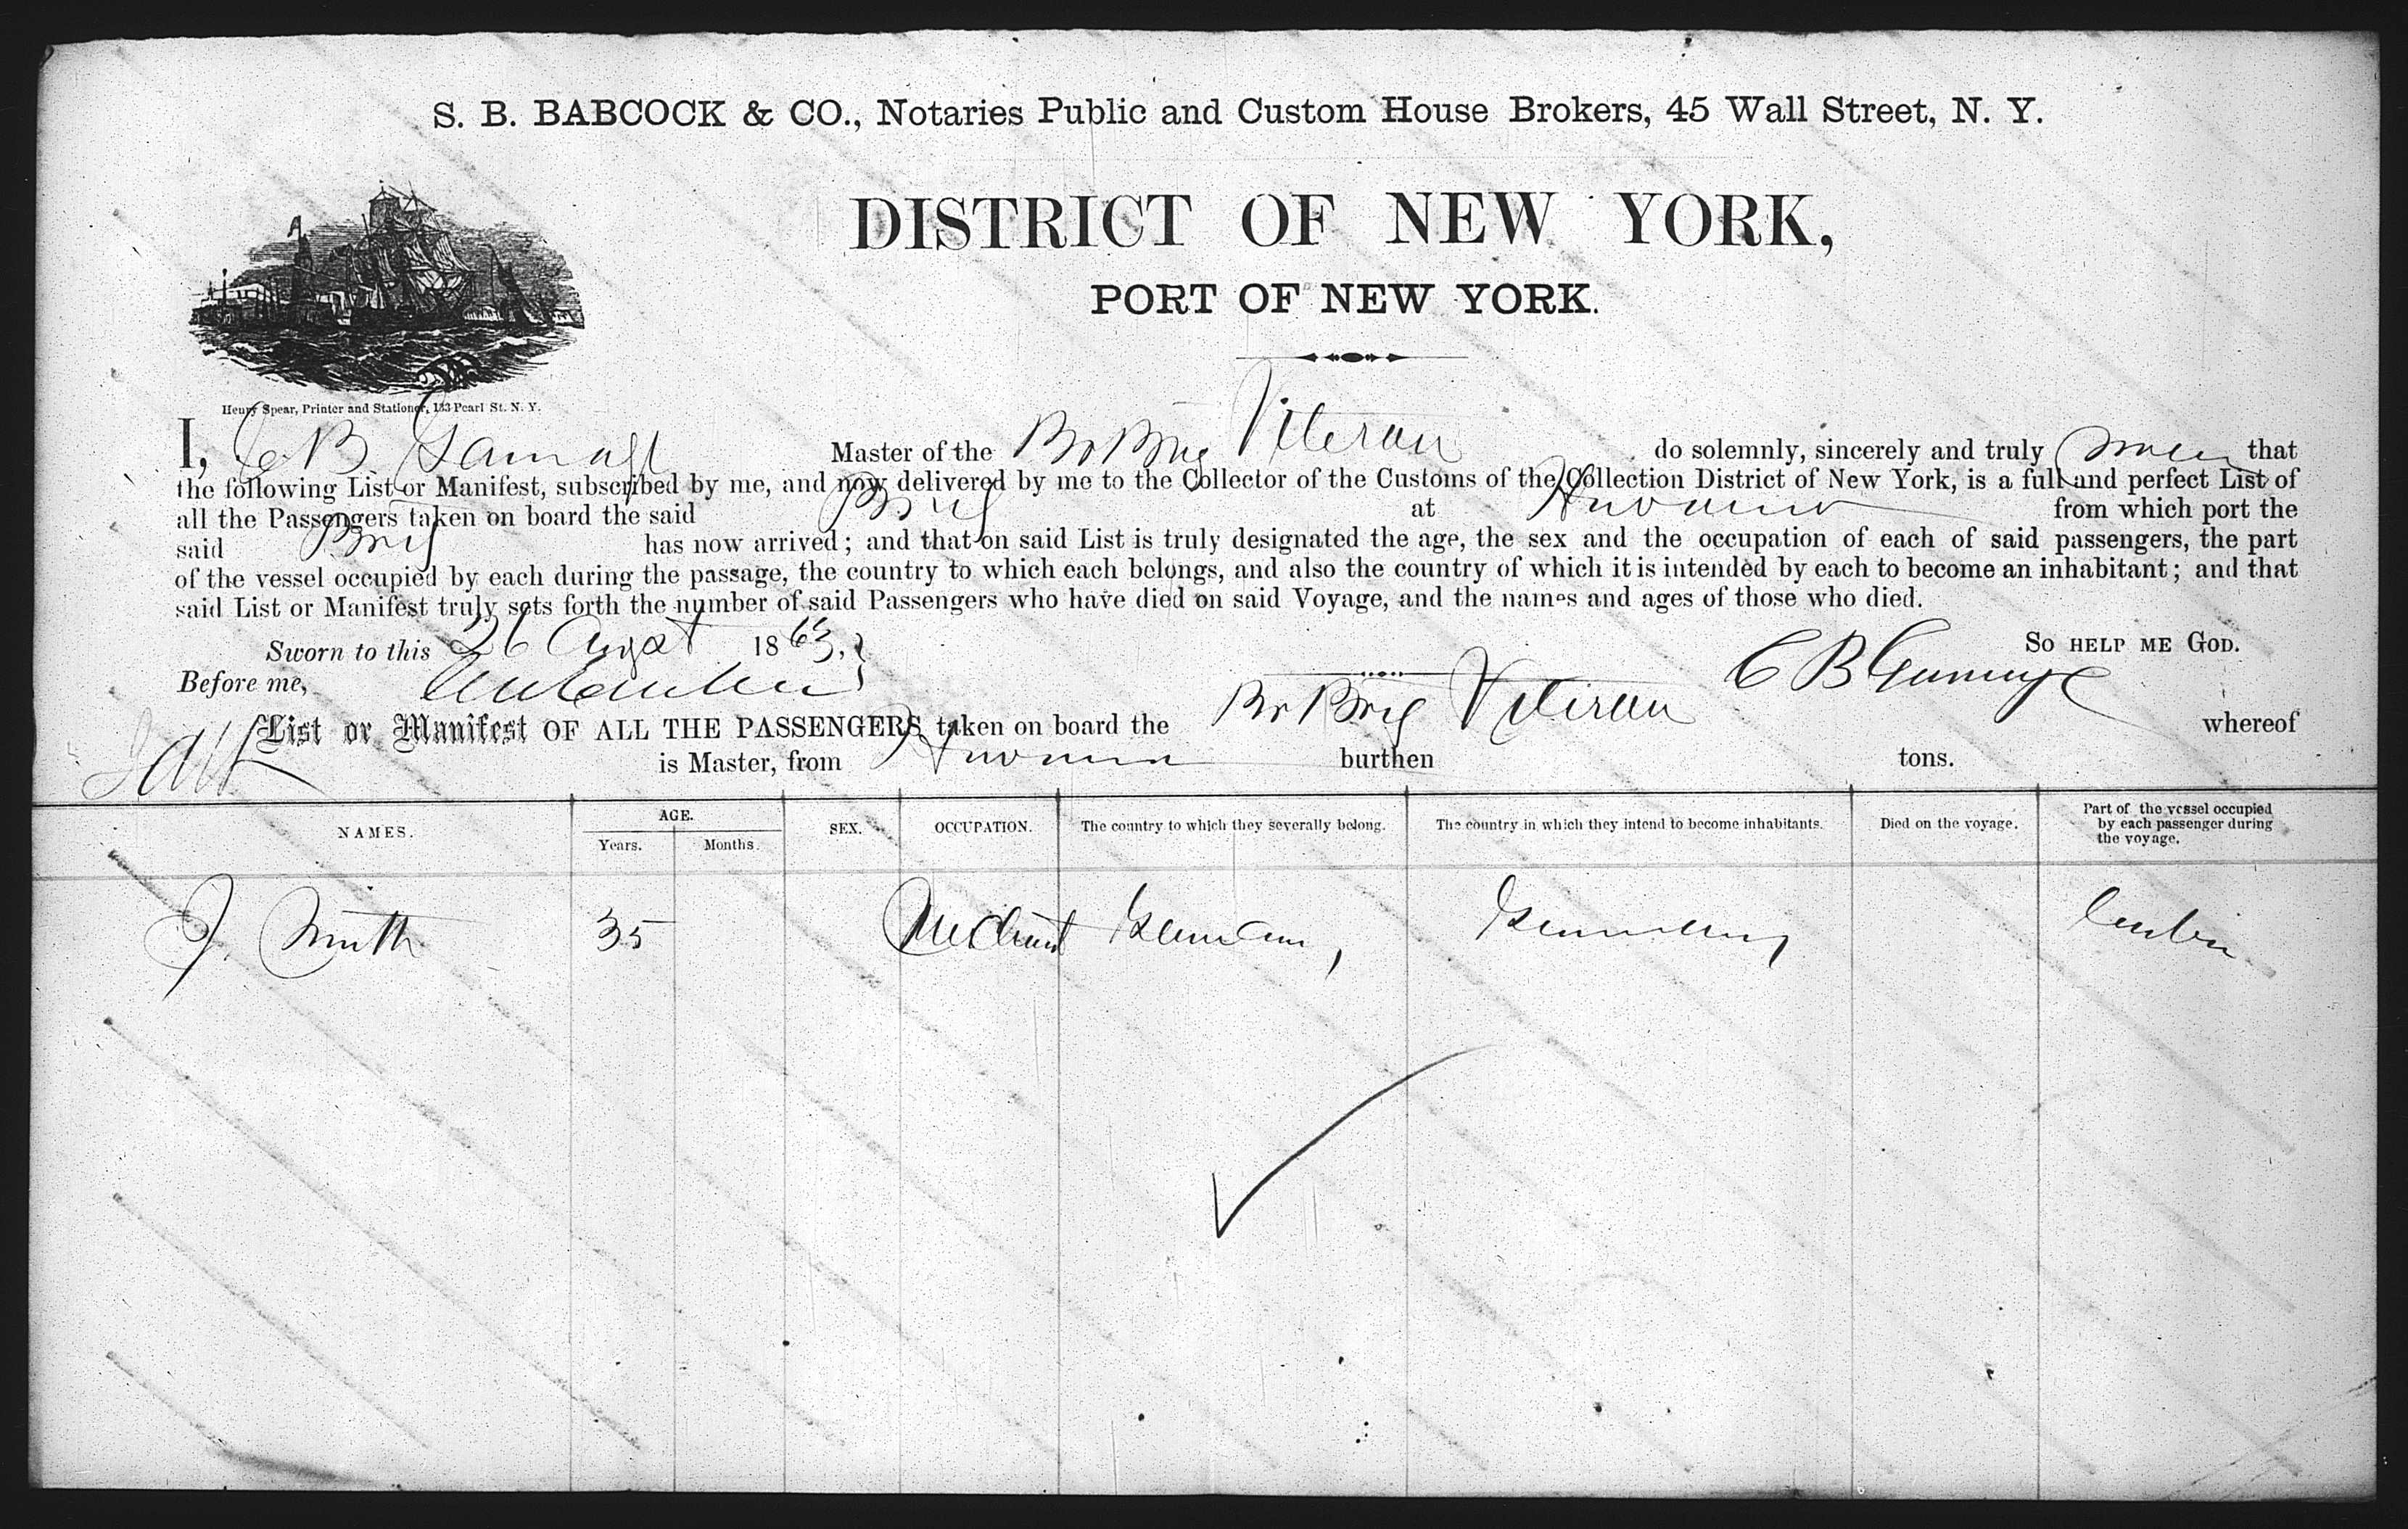 S. B. BABCOCK & CO., Notaries Public and Custom House Brokers, 45 Wall Street, N. Y.
DISTRICT OF NEW YORK,
PORT OF NEW YORK.
Henry Spear, Printer and Stationer, 133 Pearl St. N. Y.
I, C B Gamage Master of the Br Brig Veteran do solemnly, sincerely and truly swear that
the following List or Manifest, subscribed by me, and now delivered by me to the Collector of the Customs of the Collection District of New York, is a full and perfect List of
all the Passengers taken on board the said Brig at Havana from which port the
said Brig has now arrived; and that on said List is truly designated the age, the sex and the occupation of each of said passengers, the part
of the vessel occupied by each during the passage, the country to which each belongs, and also the country of which it is intended by each to become an inhabitant; and that
said List or Manifest truly sets forth the number of said Passengers who have died on said Voyage, and the names and ages of those who died.
Sworn to this 26 August 1863, SO HELP ME GOD.
Before me, C B Gamage
List or Manifest OF ALL THE PASSENGERS taken on board the Br Brig Veteran whereof
is Master, from Havana burthen tons.
NAMES. AGE. SEX. OCCUPATION. The country to which they severally belong. The country in which they intend to become inhabitants. Died on the voyage. Part of the vessel occupied by each passenger during the voyage.
Years. Months.
J. Smith 35 Merchant German, Germany Cabin